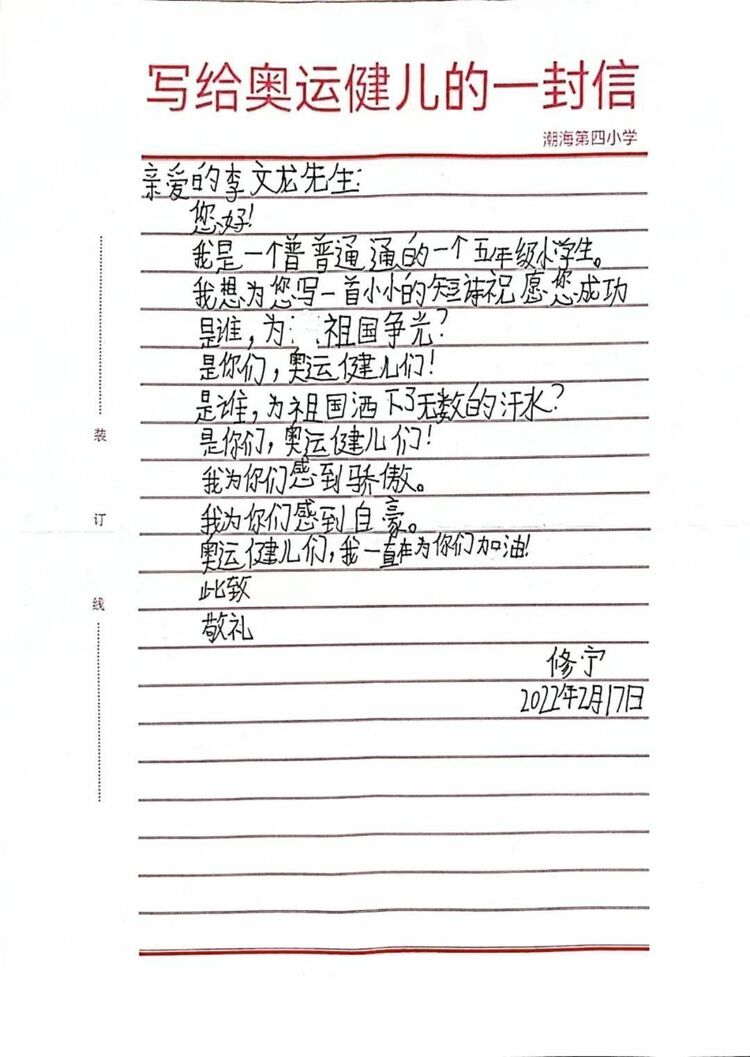 写给奥运健儿的一封信
潮海第四小学
亲爱的李文龙先生:
您好!
我是一个普普通通的一个五年级小学生。
我想为您写一首小小的短诗祝愿您成功
是谁,为祖国争光?
是你们,奥运健儿们!
是谁,为祖国洒下了无数的汗水?
是你们,奥运健儿们!
我为你们感到骄傲。
我为你们感到自豪。
奥运健儿们,我一直在为你们加油!
此致
敬礼
修宁
2022年2月17日
装
订
线